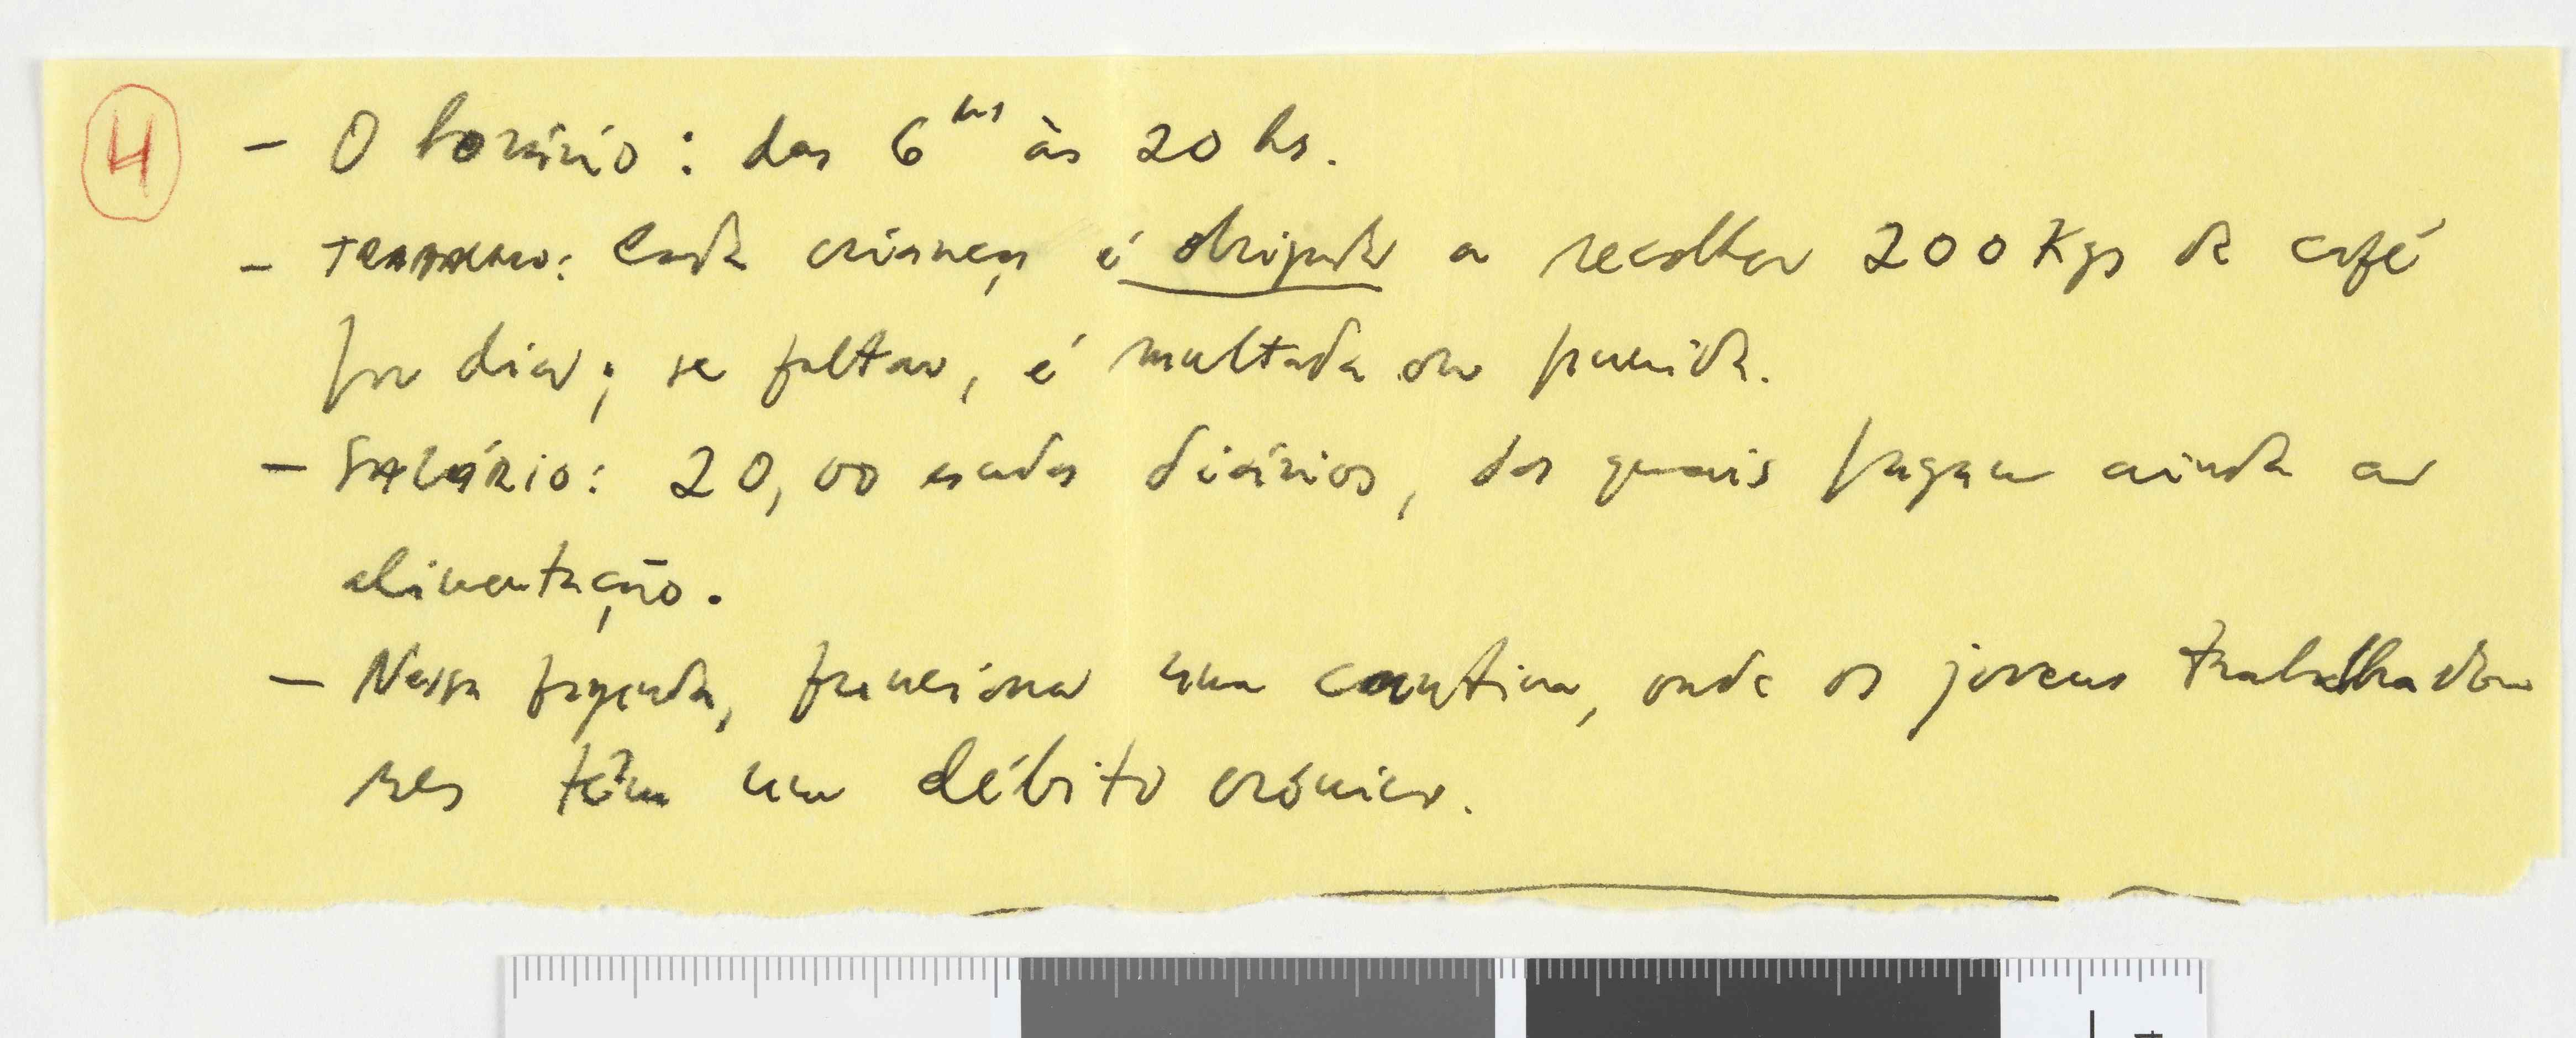 4 - O horário: das 6 hs às 20 hs.
- TRABALHO: Cada criança é obrigada a recolher 200 Kgs de café
por dia; se faltar, é multada ou punida.
- SALÁRIO: 20,00 escudos diários, dos quais pagam ainda a
alimentação.
- Nessa fazenda, funciona uma cantina, onde os jovens trabalhado
res têm um débito crônico.